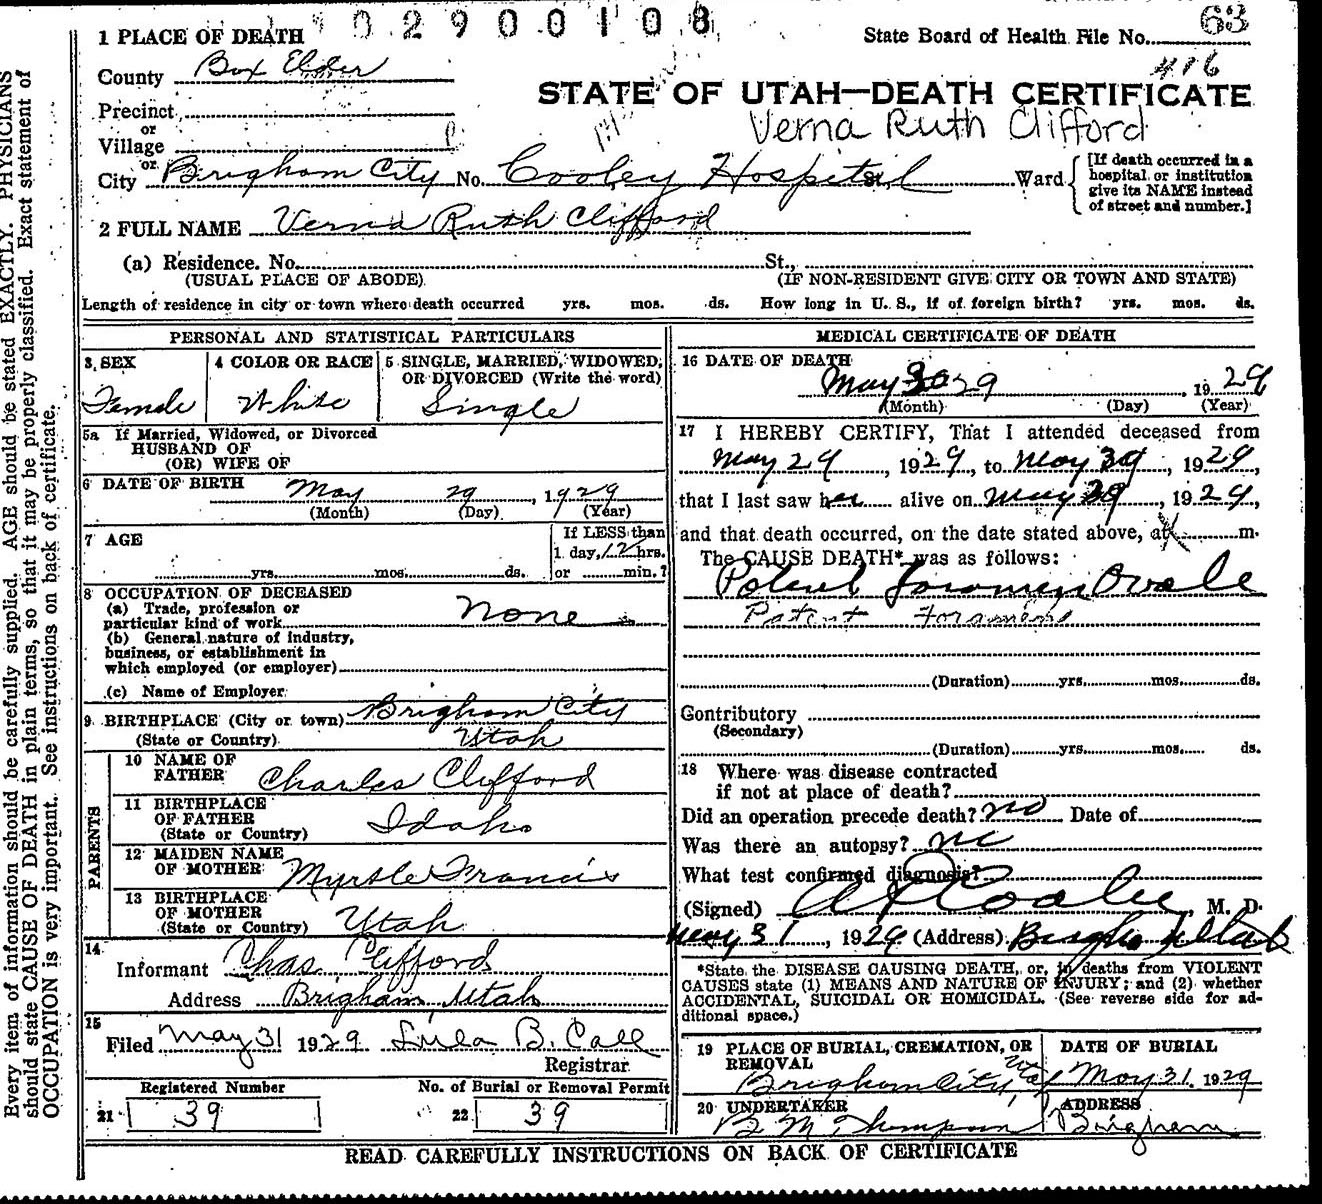 0 2 9 0 0 1 0 8
1 PLACE OF DEATH
State Board of Health File No. 63
County Box Elder
416
STATE OF UTAH—DEATH CERTIFICATE
Precinct
Verna Ruth Clifford
or
Village
or
City Brigham City No. Cooley Hospital St. Ward
[If death occurred in a
hospital or institution
give its NAME instead
of street and number.]
2 FULL NAME Verna Ruth Clifford
(a) Residence. No. St.,
(USUAL PLACE OF ABODE) (IF NON-RESIDENT GIVE CITY OR TOWN AND STATE)
Length of residence in city or town where death occurred yrs. mos. ds. How long in U. S., if of foreign birth? yrs. mos. ds.
PERSONAL AND STATISTICAL PARTICULARS
3 SEX
Female
4 COLOR OR RACE
White
5 SINGLE, MARRIED, WIDOWED,
OR DIVORCED (Write the word)
Single
5a If Married, Widowed, or Divorced
HUSBAND OF
(OR) WIFE OF
6 DATE OF BIRTH May 29, 1929
(Month) (Day) (Year)
7 AGE
yrs. mos. ds.
If LESS than
1 day, 12 hrs.
or min.?
8 OCCUPATION OF DECEASED
(a) Trade, profession or
particular kind of work None
(b) General nature of industry,
business, or establishment in
which employed (or employer)
(c) Name of Employer
9 BIRTHPLACE (City or town) Brigham City
(State or Country) Utah
PARENTS
10 NAME OF
FATHER Charles Clifford
11 BIRTHPLACE
OF FATHER
(State or Country) Idaho
12 MAIDEN NAME
OF MOTHER Myrtle Francis
13 BIRTHPLACE
OF MOTHER
(State or Country) Utah
14
Informant Chas. Clifford
Address Brigham, Utah
15
Filed May 31 1929 Lula B. Call
Registrar
Registered Number No. of Burial or Removal Permit
21 39 22 39
MEDICAL CERTIFICATE OF DEATH
16 DATE OF DEATH
May 29, 1929
(Month) (Day) (Year)
17 I HEREBY CERTIFY, That I attended deceased from
May 29, 1929, to May 29, 1929,
that I last saw her alive on May 29, 1929,
and that death occurred, on the date stated above, at m.
The CAUSE DEATH* was as follows:
Patent Foramen Ovale
Patent Foramen
(Duration) yrs. mos. ds.
Contributory
(Secondary)
(Duration) yrs. mos. ds.
18 Where was disease contracted
if not at place of death?
Did an operation precede death? no Date of
Was there an autopsy? no
What test confirmed diagnosis?
(Signed) M. D.
May 31, 1929 (Address) Brigham Utah
*State the DISEASE CAUSING DEATH, or, in deaths from VIOLENT
CAUSES state (1) MEANS AND NATURE OF INJURY; and (2) whether
ACCIDENTAL, SUICIDAL OR HOMICIDAL. (See reverse side for ad-
ditional space.)
19 PLACE OF BURIAL, CREMATION, OR
REMOVAL
Brigham City, Utah
DATE OF BURIAL
May 31 1929
20 UNDERTAKER
B. M. Thompson
ADDRESS
Brigham
READ CAREFULLY INSTRUCTIONS ON BACK OF CERTIFICATE
Every item of information should be carefully supplied. AGE should be stated EXACTLY. PHYSICIANS
should state CAUSE OF DEATH in plain terms, so that it may be properly classified. Exact statement of
OCCUPATION is very important. See instructions on back of certificate.